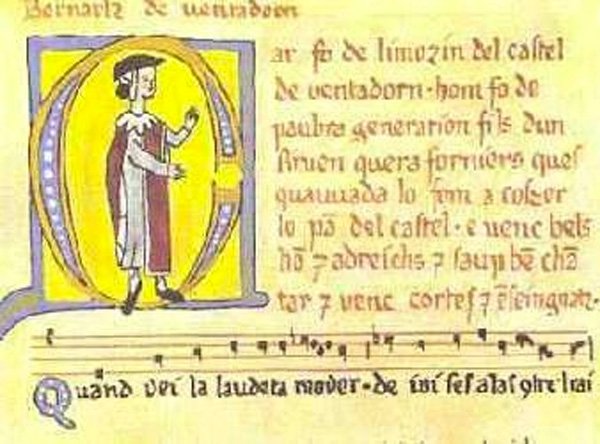 Bernartz de ventadorn
ar fo de limozin del castel
de ventadorn·hom fo de
paubra generarion fils dun
siruen quera forniers ques
quauuada lo forn a cozer
lo pā del castel·e uenc bels
hō ⁊ adreichs ⁊ saup bē chā
tar ⁊ uenc cortes ⁊ ēseingnatz·
Quand vei la laudeta mover·de ioi sas alas